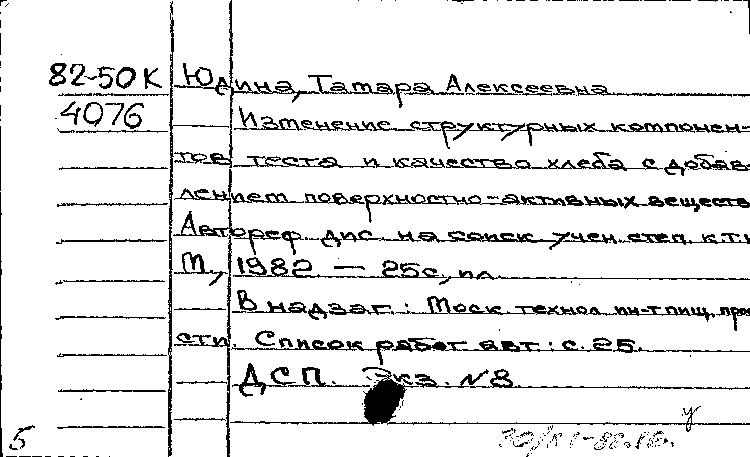 82-50К Юдина, Тамара Алексеевна
4076 Изменение структурных компонен-
тов теста и качество хлеба с добав-
лением поверхностно-активных веществ
Автореф. дис. на соиск. учен. степ. к.т.н
М., 1982 — 25с., ил.
В надзаг.: Моск. технол. ин-т пищ. про
сти. Список работ авт.: с. 25.
ДСП. Экз. №8
у
5